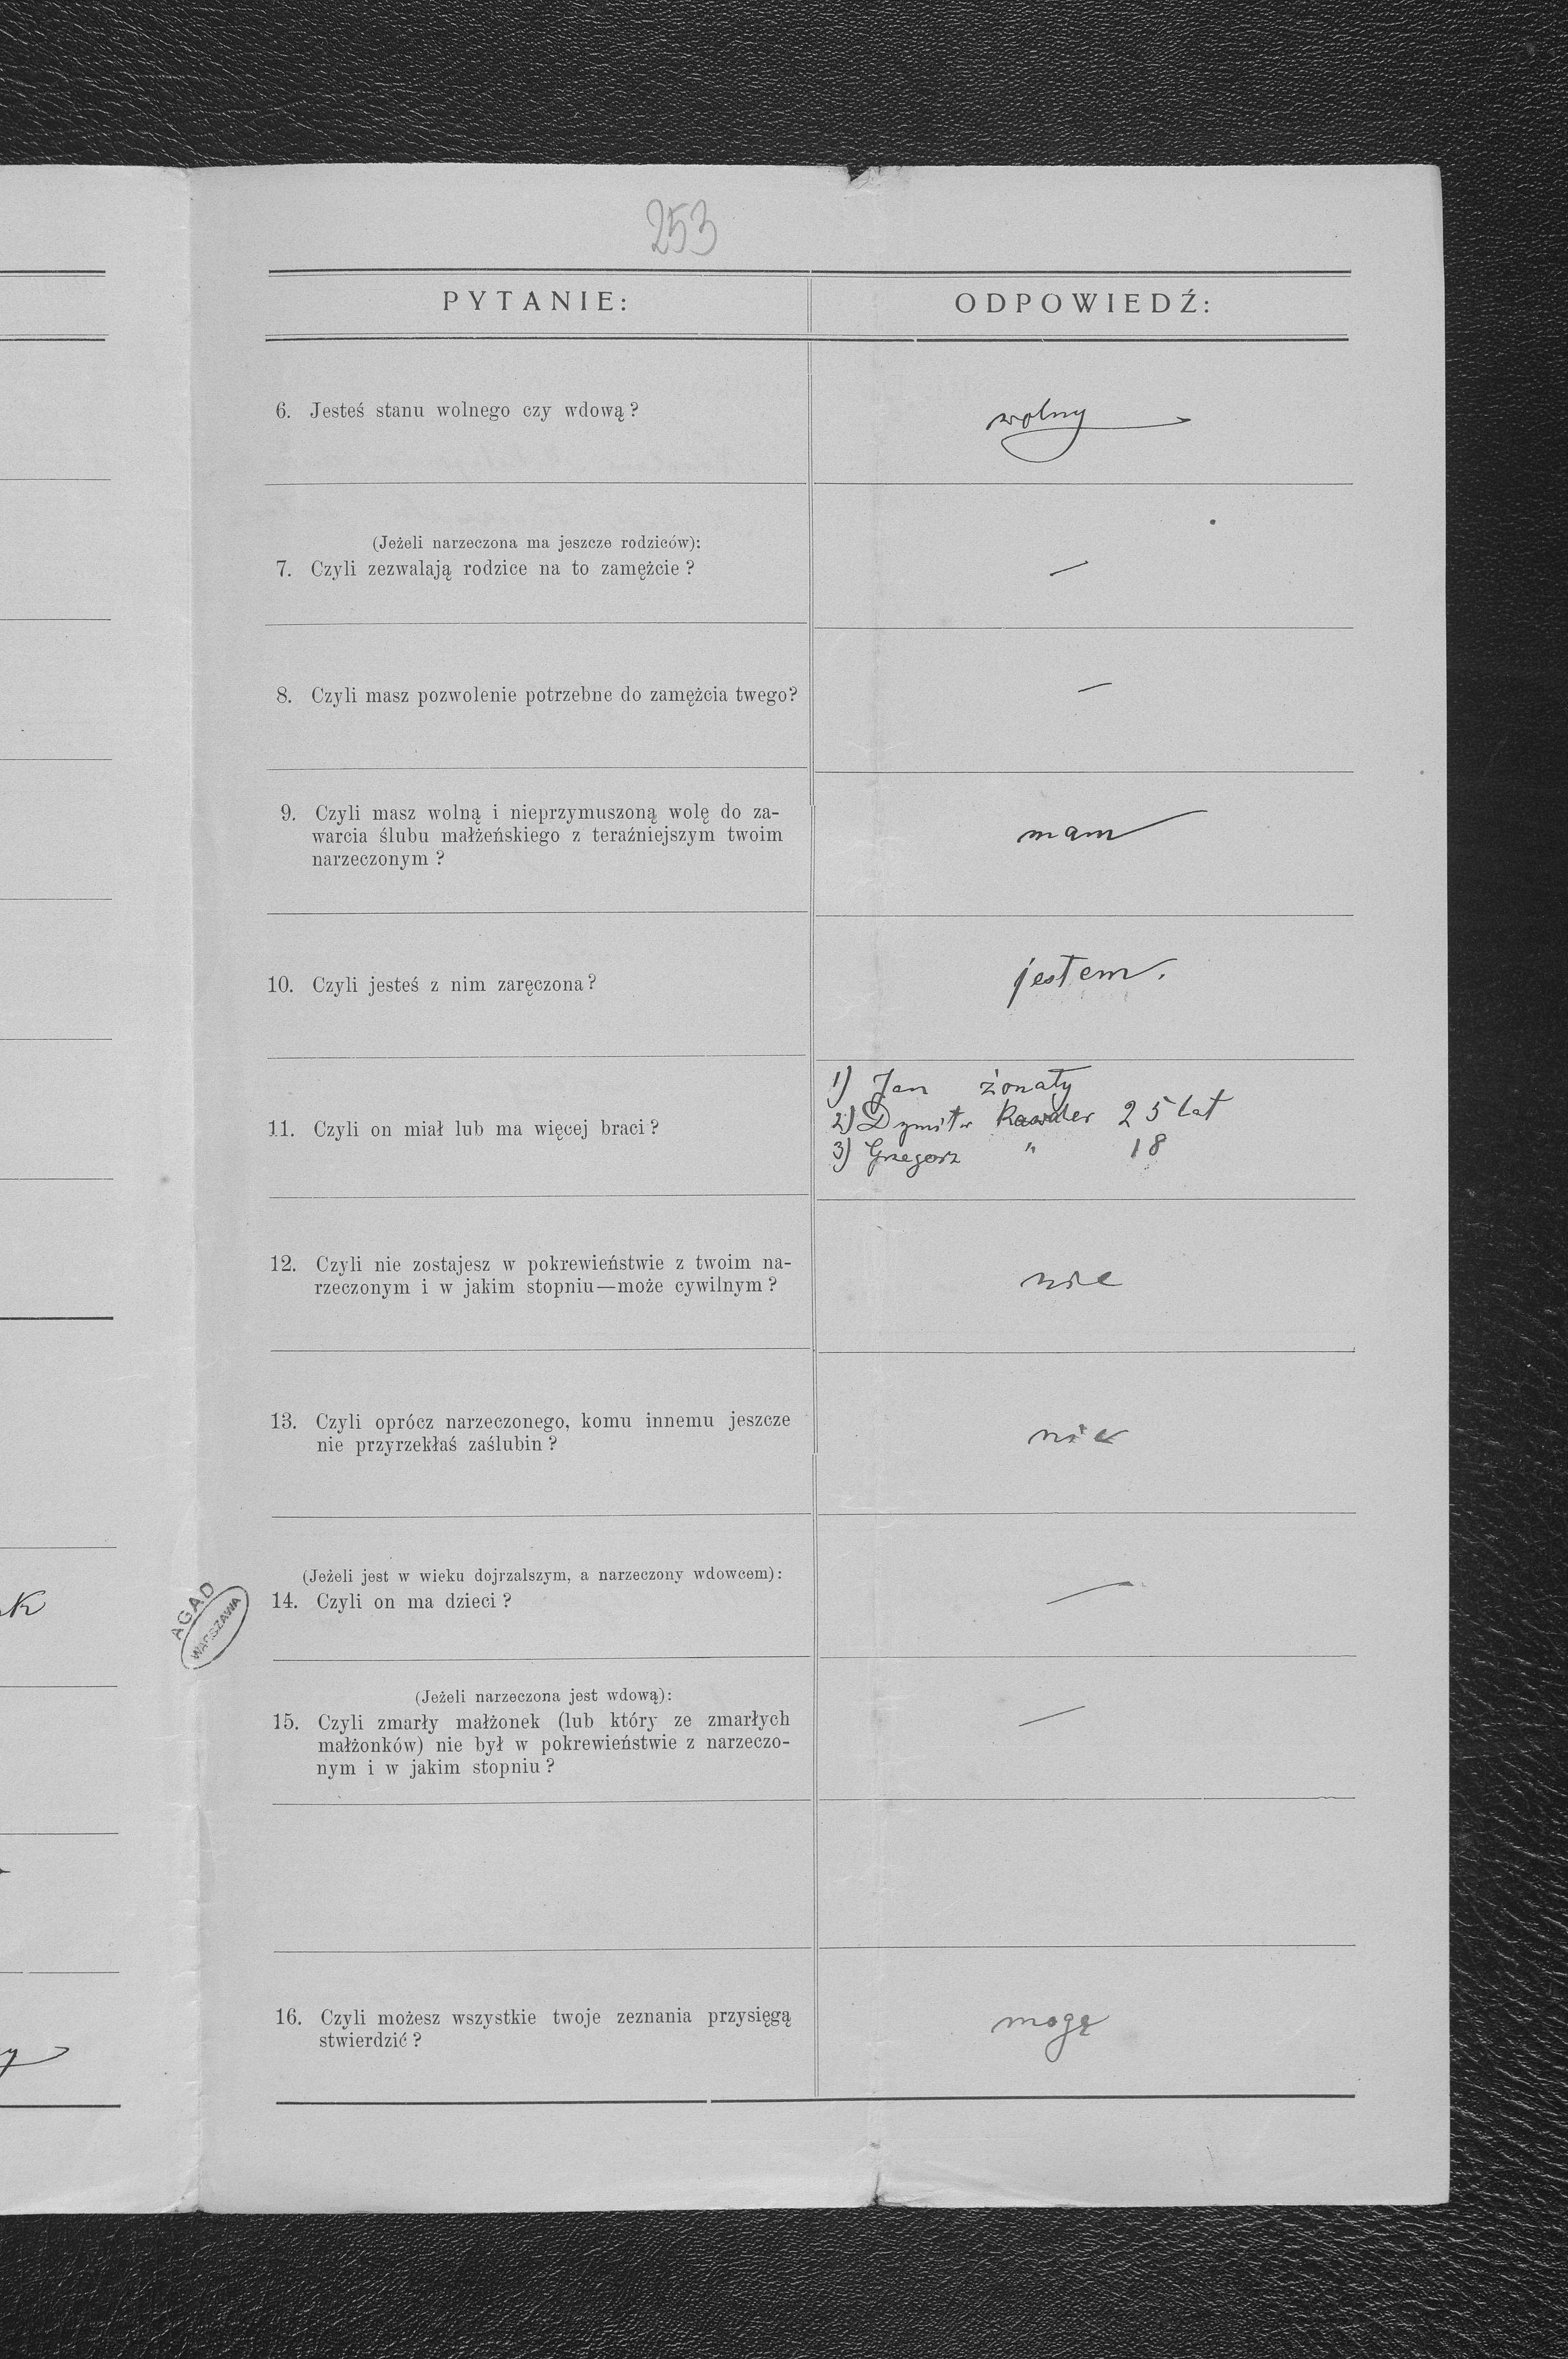 253
PYTANIE:
ODPOWIEDŹ:
6. Jesteś stanu wolnego czy wdową?
wolny
(Jeżeli narzeczona ma jeszcze rodziców):
7. Czyli zezwalają rodzice na to zamężcie?
—
8. Czyli masz pozwolenie potrzebne do zamężcia twego?
—
9. Czyli masz wolną i nieprzymuszoną wolę do za-
warcia ślubu małżeńskiego z teraźniejszym twoim
narzeczonym?
mam
10. Czyli jesteś z nim zaręczona?
jestem.
11. Czyli on miał lub ma więcej braci?
1) Jan żonaty
2) Dymitr Kawaler 25 lat
3) Grzegorz " 18
12. Czyli nie zostajesz w pokrewieństwie z twoim na-
rzeczonym i w jakim stopniu—może cywilnym?
nie
13. Czyli oprócz narzeczonego, komu innemu jeszcze
nie przyrzekłaś zaślubin?
nie
(Jeżeli jest w wieku dojrzalszym, a narzeczony wdowcem):
14. Czyli on ma dzieci?
—
(Jeżeli narzeczona jest wdową):
15. Czyli zmarły małżonek (lub który ze zmarłych
małżonków) nie był w pokrewieństwie z narzeczo-
nym i w jakim stopniu?
—
16. Czyli możesz wszystkie twoje zeznania przysięgą
stwierdzić?
mogę
AGAD
WARSZAWA